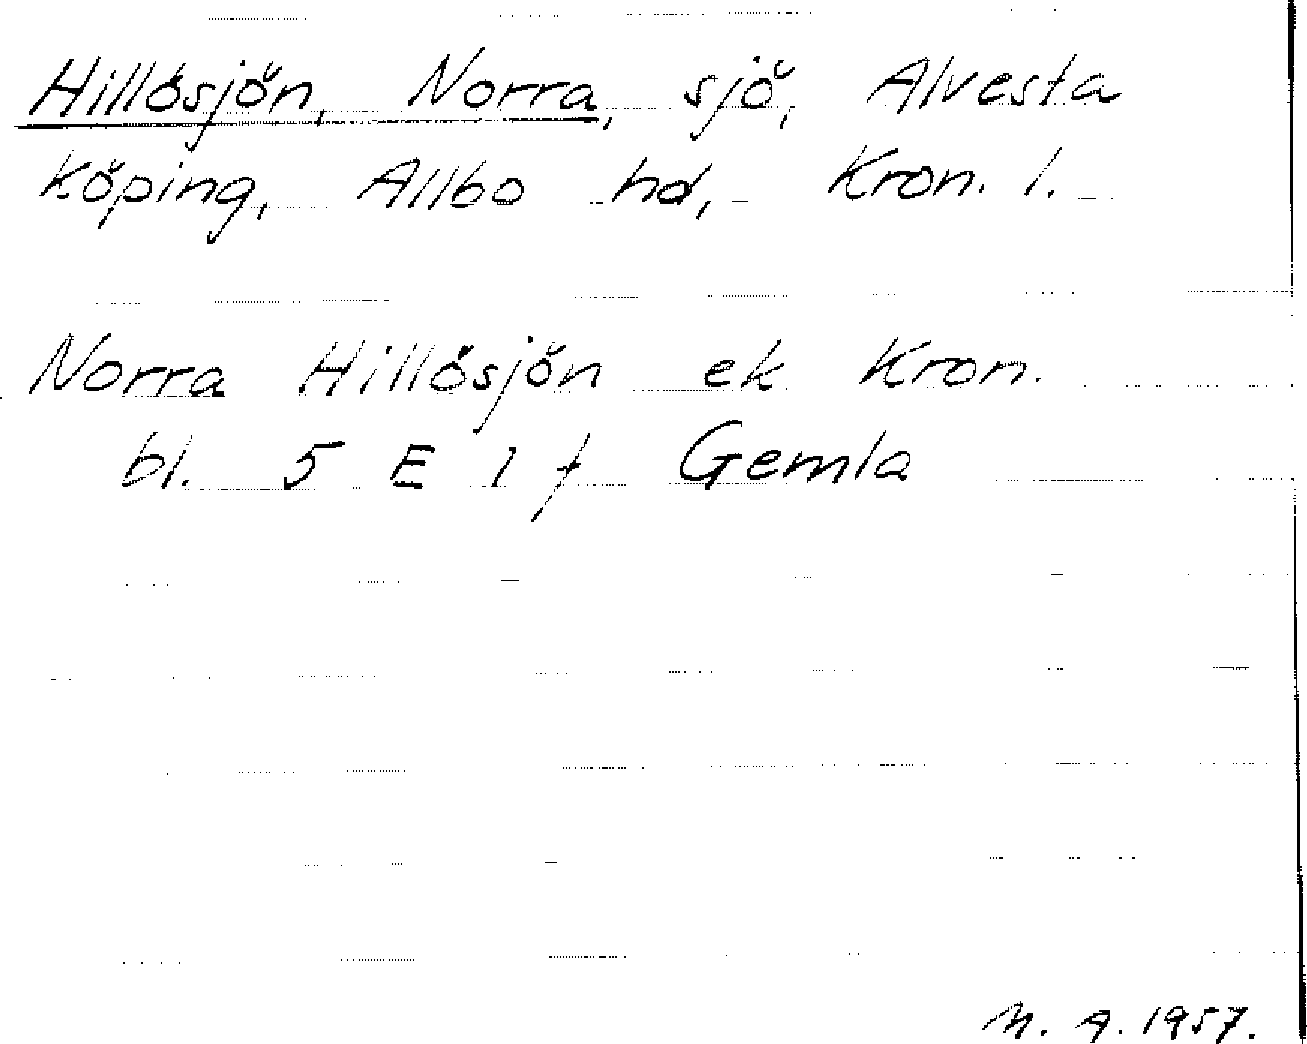 Hillösjön, Norra, sjö, Alvesta
köping, Allbo hd, Kron. l.
Norra Hillösjön ek Kron.
bl. 5 E 1 f Gemla
M. A. 1957.